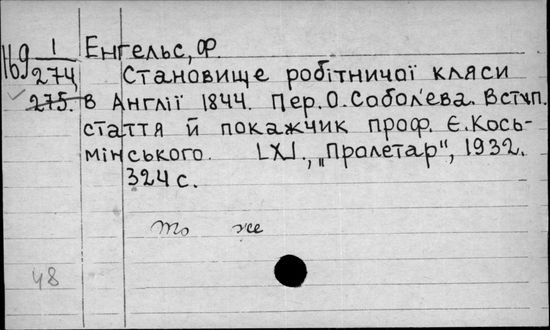 169 1/274 Енгельс, Ф.
275. Становище робітничої кляси
в Англії 1844. Пер. О. Соболєва. Вступ.
стаття й покажчик проф. Є. Кось-
мінського. [Х]., „Пролетар", 1932.
324 с.
То же
48